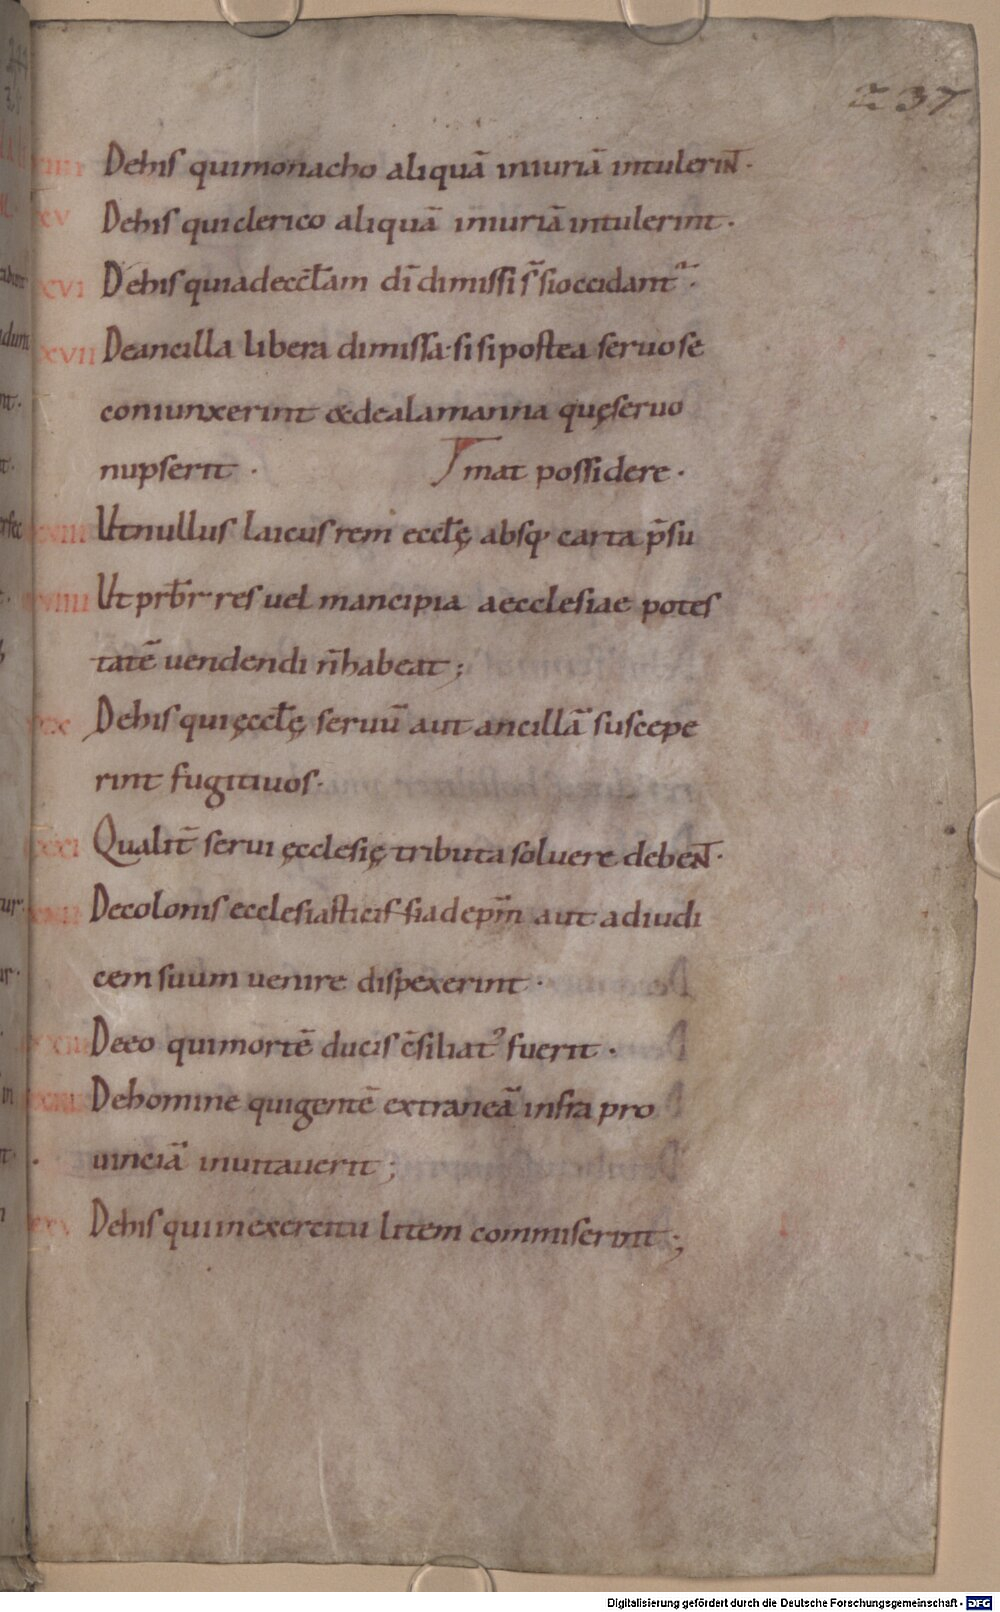 237
XIIII Dehis quimonacho aliquā iniuriā intulerint.
XV Dehis quiclerico aliquā iniuriā intulerint.
XVI Dehis quiadecclam dī dimissi st̄ sioccidant᷑.
XVII Deancilla libera dimissa. sisipostea seruose
coniunxerint &dealamanna quęseruo
nupserit. mat possidere.
XVIII Utnullus laicus rem ecclę absq; carta p̄su
XVIIII Utprb̄r res uel mancipia aecclesiae potes
tatē uendendi n̄habeat;
XX Dehis quięcclę seruū aut ancillā suscepe
rint fugitiuos.
XXI Qualit̄ serui ęcclesię tributa soluere debent.
XXII Decolonis ecclesiasticis siadepm̄ aut adiudi
cem suum uenire dispexerint.
XXIII Deeo quimortē ducis c̄siliat᷒ fuerit.
XXIIII Dehomine quigentē extraneā infra pro
uinciā inuitauerit;
XXV Dehis quiinexercitu litem commiserint;
Digitalisierung gefördert durch die Deutsche Forschungsgemeinschaft - DFG